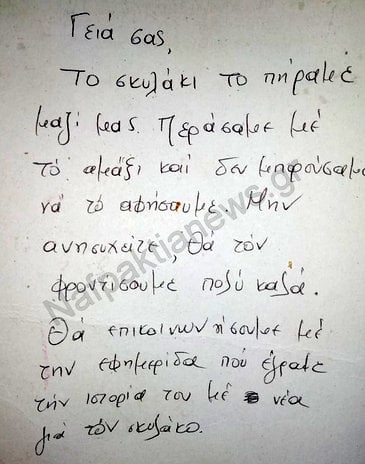 Γειά σας,
Το σκυλάκι το πήραμε
μαζί μας. Περάσαμε μέ
τό αμάξι καί δεν μπορούσαμε
νά τό αφήσουμε. Μην
ανησυχείτε, θά τόν
φροντίσουμε πολύ καλά.
Θά επικοινωνήσουμε μέ
την εφημερίδα πού έγραψε
τήν ιστορία του μέ νέα
γιά τόν σκυλάκο.
Nafpaktianews.gr